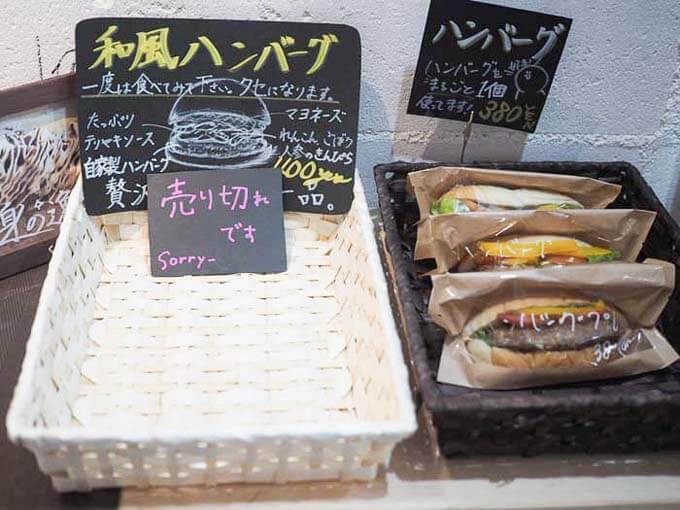 和風ハンバーグ
一度は食べてみて下さい。クセになります。
マヨネーズ
たっぷり
テリヤキソース
れんこん、ごぼう
人参のきんぴら
自家製ハンバーグ
贅沢
品。
売り切れ
です
Sorry
ハンバーグ
ハンバーグを
まるごと1個
使ってます!
380
バーグ